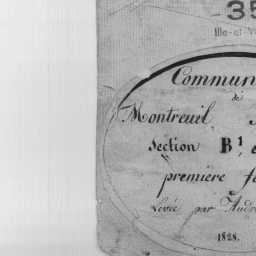 35
Ille-et-V
Commun
de
Montreuil
Section B¹
première
Levée par André
1828.